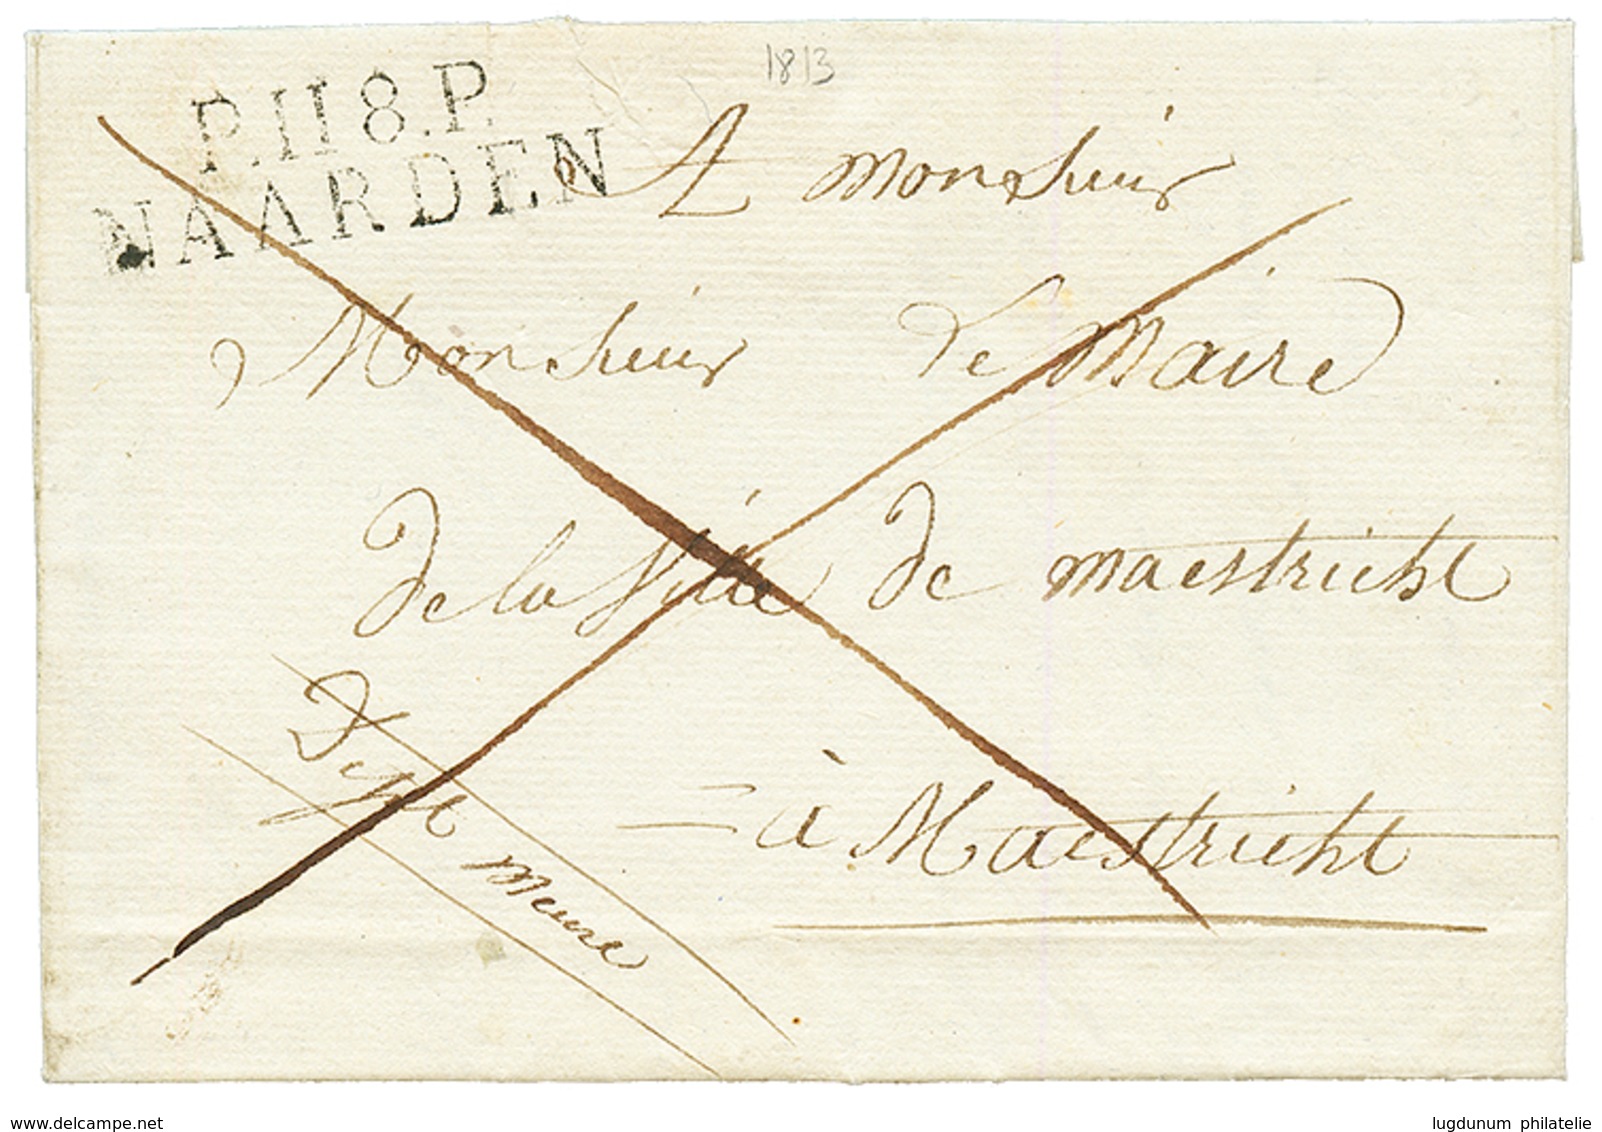 1813
P.118.P.
NAARDEN
A Monsieur
Monsieur Le Maire
De la Ville De Maestricht
à Maestricht
Dept
Meuse
delcampe.net
lugdunum philatelie